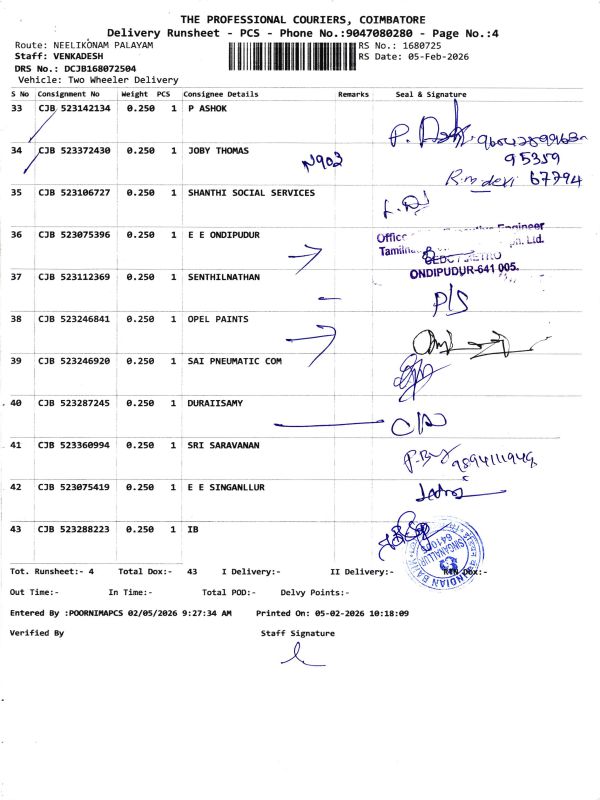 THE PROFESSIONAL COURIERS, COIMBATORE
Delivery Runsheet - PCS - Phone No.:9047080280 - Page No.:4
Route: NEELIKONAM PALAYAM RS No.: 1680725
Staff: VENKADESH RS Date: 05-Feb-2026
DRS No.: DCJB168072504
Vehicle: Two Wheeler Delivery
S No Consignment No Weight PCS Consignee Details Remarks Seal & Signature
33 CJB 523142134 0.250 1 P ASHOK
34 CJB 523372430 0.250 1 JOBY THOMAS N903 95359
R.m devi 67794
35 CJB 523106727 0.250 1 SHANTHI SOCIAL SERVICES
36 CJB 523075396 0.250 1 E E ONDIPUDUR Engineer
Ltd.
ONDIPUDUR-641 005.
37 CJB 523112369 0.250 1 SENTHILNATHAN P/S
38 CJB 523246841 0.250 1 OPEL PAINTS
39 CJB 523246920 0.250 1 SAI PNEUMATIC COM
40 CJB 523287245 0.250 1 DURAIISAMY
41 CJB 523360994 0.250 1 SRI SARAVANAN
42 CJB 523075419 0.250 1 E E SINGANLLUR
43 CJB 523288223 0.250 1 IB
INDIAN BANK SINGANALLUR
Tot. Runsheet:- 4 Total Dox:- 43 I Delivery:- II Delivery:- RTN Dox:-
Out Time:- In Time:- Total POD:- Delvy Points:-
Entered By :POORNIMAPCS 02/05/2026 9:27:34 AM Printed On: 05-02-2026 10:18:09
Verified By Staff Signature